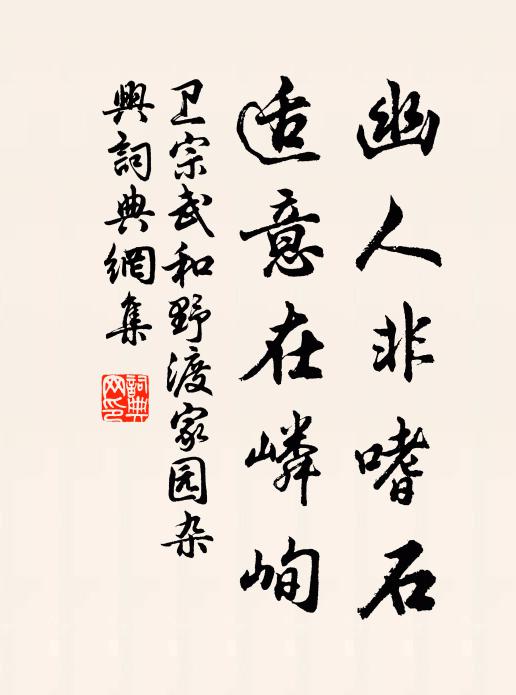 幽人非嗜石
适意在嶙峋
卫宗武和野渡家园杂
興詞典網集
詞典
网印